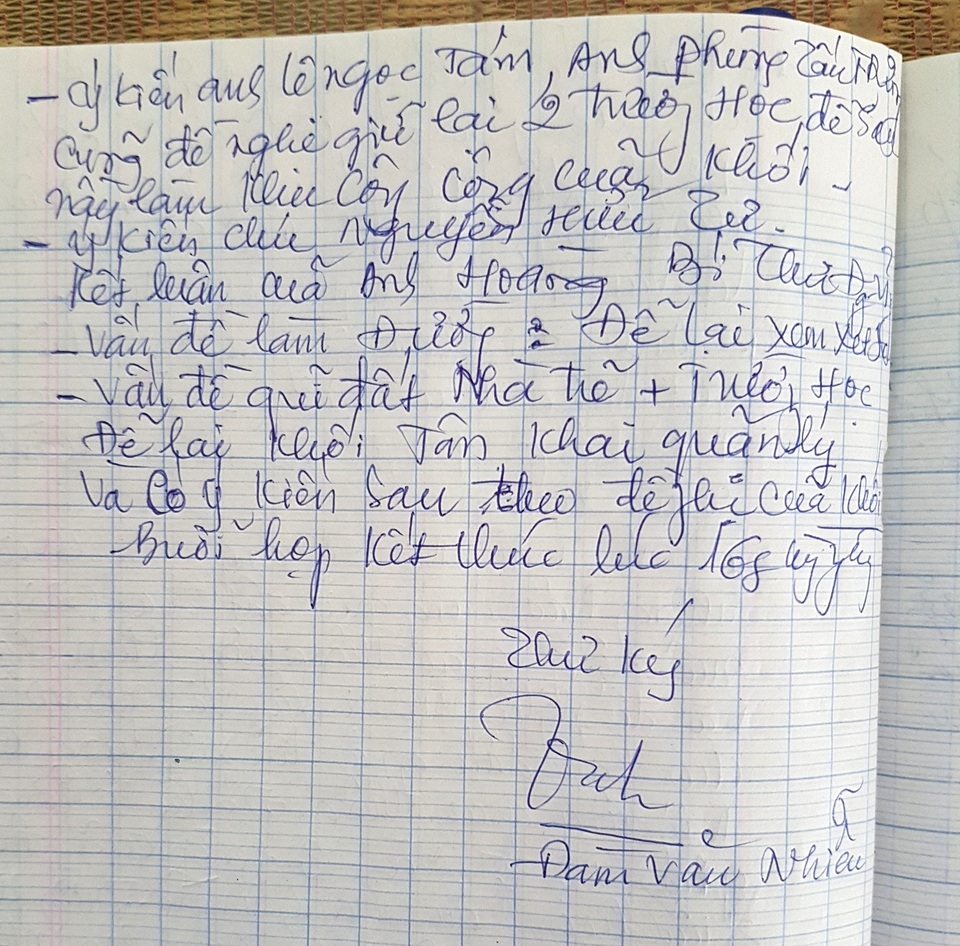 - Ý kiến anh Lê Ngọc Tám, Anh Phùng Tấu
Cũng đề nghị giữ lại 2 trường Học, để sau
nầy làm khu Côn Cổng cuả Khối -
- Ý kiến chú Nguyễn Hữu Tư.
Kết luân cuả Anh Hoàng Bí Thư
- Vấn đề làm Đường : Để lại xem xét
- Vấn đề quỉ đất Nhà trẽ + Trường Học
Để lại Khối Tân Khai quãn lý
Và Có ý kiên Sau theo đề lại cuả Khối
Buỗi họp Kết thúc lúc 16g
Thư ký
Đàm Văn Nhiễu